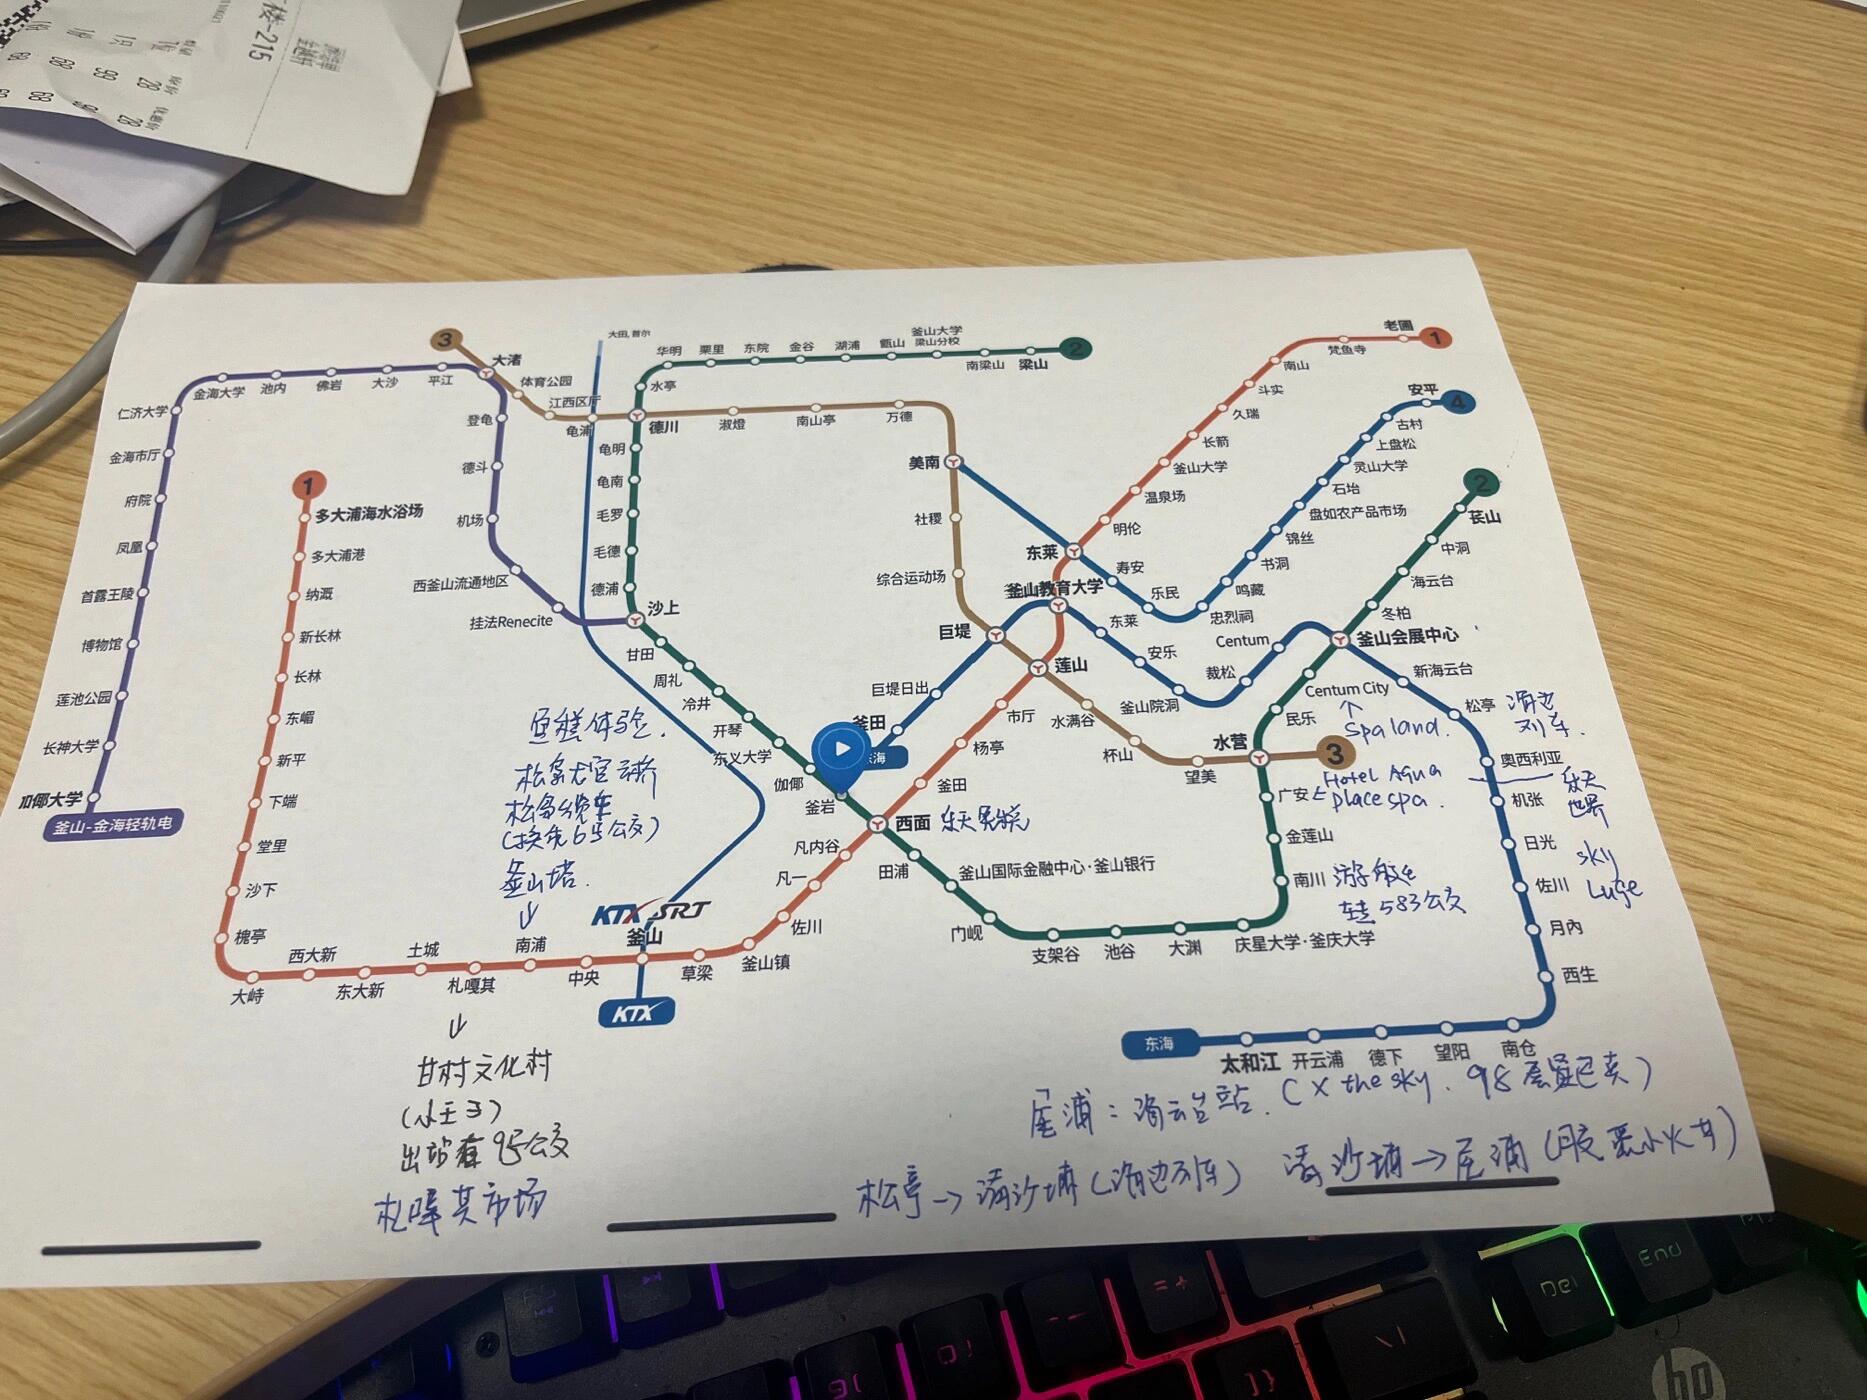 楼-215
28
99
68
28
68
3
大渚
体育公园
江西区厅
龟浦
大田, 首尔
华明
栗里
东院
金谷
湖浦
甑山
釜山大学
梁山分校
南梁山
梁山
2
水亭
德川
淑燈
南山亭
万德
老圃
1
梵鱼寺
南山
斗实
久瑞
长箭
釜山大学
温泉场
明伦
安平
4
古村
上盘松
灵山大学
石坮
盘如农产品市场
锦丝
书洞
鸣藏
忠烈祠
乐民
寿安
东莱
美南
社稷
综合运动场
巨堤
莲山
水满谷
杯山
望美
水营
3
金海大学
池内
佛岩
大沙
平江
仁济大学
金海市厅
府院
凤凰
首露王陵
博物馆
莲池公园
长神大学
伽倻大学
釜山-金海轻轨电
登龟
德斗
机场
西釜山流通地区
挂法Renecite
龟明
龟南
毛罗
毛德
德浦
沙上
甘田
周礼
冷井
开琴
东义大学
伽倻
釜岩
西面 乐天免税
田浦
釜山国际金融中心·釜山银行
门岘
支架谷
池谷
大渊
庆星大学·釜庆大学
1
多大浦海水浴场
多大浦港
纳溉
新长林
长林
东嵋
新平
下端
堂里
沙下
槐亭
大峙
西大新
东大新
土城
札嘎其
南浦
中央
釜山
草梁
釜山镇
佐川
凡一
凡内谷
釜田
杨亭
市厅
釜山教育大学
东莱
安乐
釜山院洞
裁松
Centum
釜山会展中心
新海云台
松亭 海边
列车
奥西利亚
乐天
世界
机张
日光
sky
Luge
佐川
月内
西生
南仓
望阳
德下
开云浦
太和江
东海
巨堤日出
釜田
东海
2
苌山
中洞
海云台
冬柏
Centum City
↑
Spa land.
民乐
广安
Hotel Aqua
place spa.
金莲山
南川 游艇
转 583公交
鱼糕体验.
松岛龙宫云桥
松岛缆车
(换乘6号公交)
釜山塔.
↓
KTX SRT
KTX
↓
甘村文化村
(小王子)
出站有 95公交
札嘎其市场
尾浦: 海云台站. (X the sky. 98层星巴克)
松亭→清沙埔(海边列车) 清沙埔→尾浦(胶囊小火车)
Del
End
hp